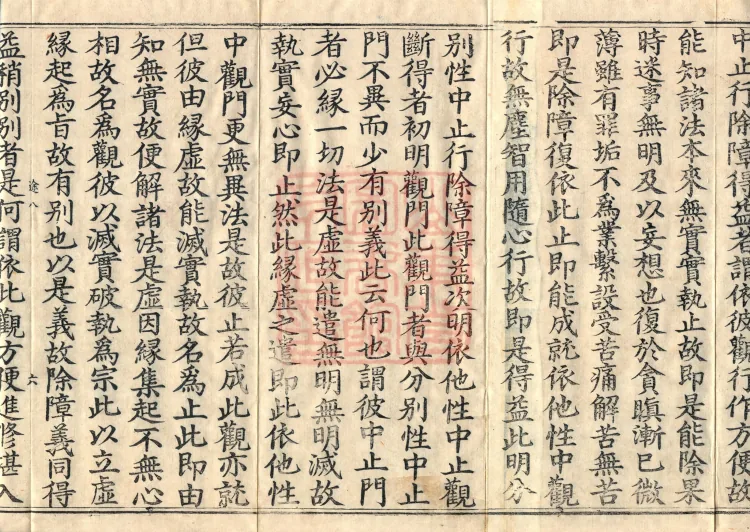 中止行除障得益者謂依彼觀行作方便故
能知諸法本來無實實執止故即是能除果
時迷事無明及以妄想也復於貪瞋漸已微
薄雖有罪垢不為業繫設受苦痛解苦無苦
即是除障復依此止即能成就依他性中觀
行故無塵智用隨心行故即是得益此明分
別性中止行除障得益次明依他性中止觀
斷得者初明觀門此觀門者與分別性中止
門不異而少有別義此云何也謂彼中止門
者必緣一切法是虛故能遣無明無明滅故
執實妄心即止然此緣虛之遣即此依他性
中觀門更無異法是故彼止若成此觀亦就
但彼由緣虛故能滅實執故名為止此即由
知無實故便解諸法是虛因緣集起不無心
相故名為觀彼以滅實破執為宗此以立虛
緣起為旨故有別也以是義故除障義同得
途八
六
益稍別別者是何謂依此觀方便進修甚入